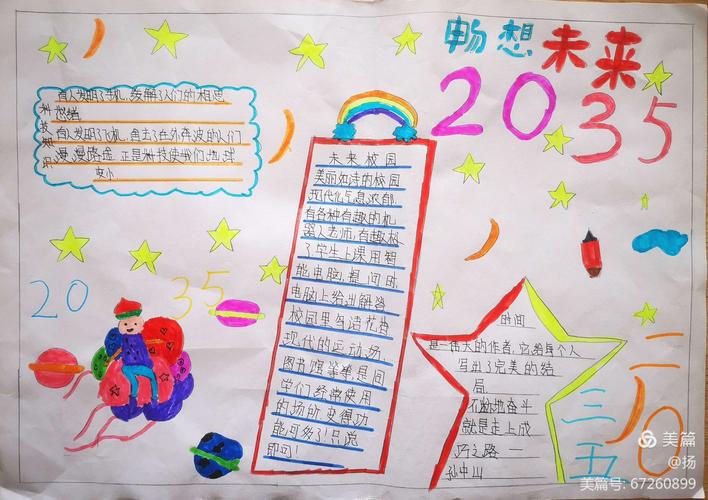 畅想未来
2035
有人发明了手机,缓解了人们的相思
愁绪
科技知识
有人发明了飞机,免去了在外奔波的人们
漫漫路途 正是科技使我们地球
变小
未来校园
美丽如诗的校园
现代化气息浓郁,
有各种有趣的机
器人老师,有趣极
了学生上课用智
能电脑,提问时,
电脑上给出解答
校园里鸟语花香
现代的运动场、
图书馆等等,是同
学们经常使用
的场所,变得功
能可多了!只说
即可!
2035
时间
是一伟大的作者,它给每个人
写出了完美的结
局
不断地奋斗
就是走上成
功之路 —
孙中山
二〇三五
美篇
@扬
美篇号: 67260899